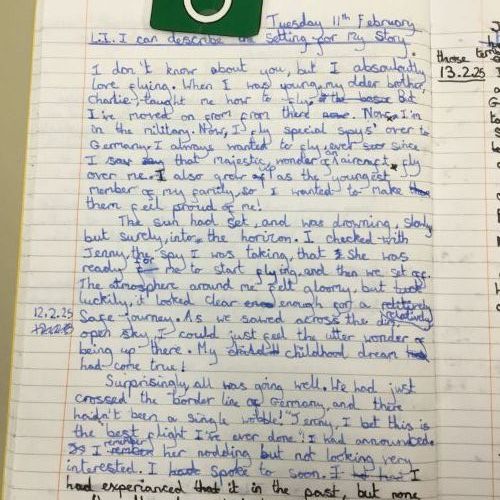 Tuesday 11th February
L.I. I can describe the setting for my story.
I don't know about you, but I absoulutly
love flying. When I was young, my older brother,
charlie, taught me how to fly. But
I've moved on from there. Now, I'm
in the military. Now, I fly special spys' over to
Germany. I always wanted to fly, ever since
I saw that majestic wonder of an aircraft fly
over me. I also grew up as the youngest
member of my family so I wanted to make
them feel proud of me!
The sun had set, and was drowning, slowly
but surely, into the horizon. I checked with
Jenny, the spy I was taking, that she was
ready for me to start flying, and then we set off.
The atmosphere around me felt gloomy, but
luckily, it looked clear enough for a relitively
relatively
12.2.25
safe journey. As we soared across the
open sky, I could just feel the utter wonder of
being up there. My childhood dream
had come true!
Surprisingly, all was going well. We had just
crossed the border line of Germany, and there
hadn't been a single wobble! "Jenny, I bet this is
the best flight I've ever done." I had announced.
I remember her nodding but not looking very
interested. I spoke to soon. I
had experianced that it in the past, but none
those
13.2.25